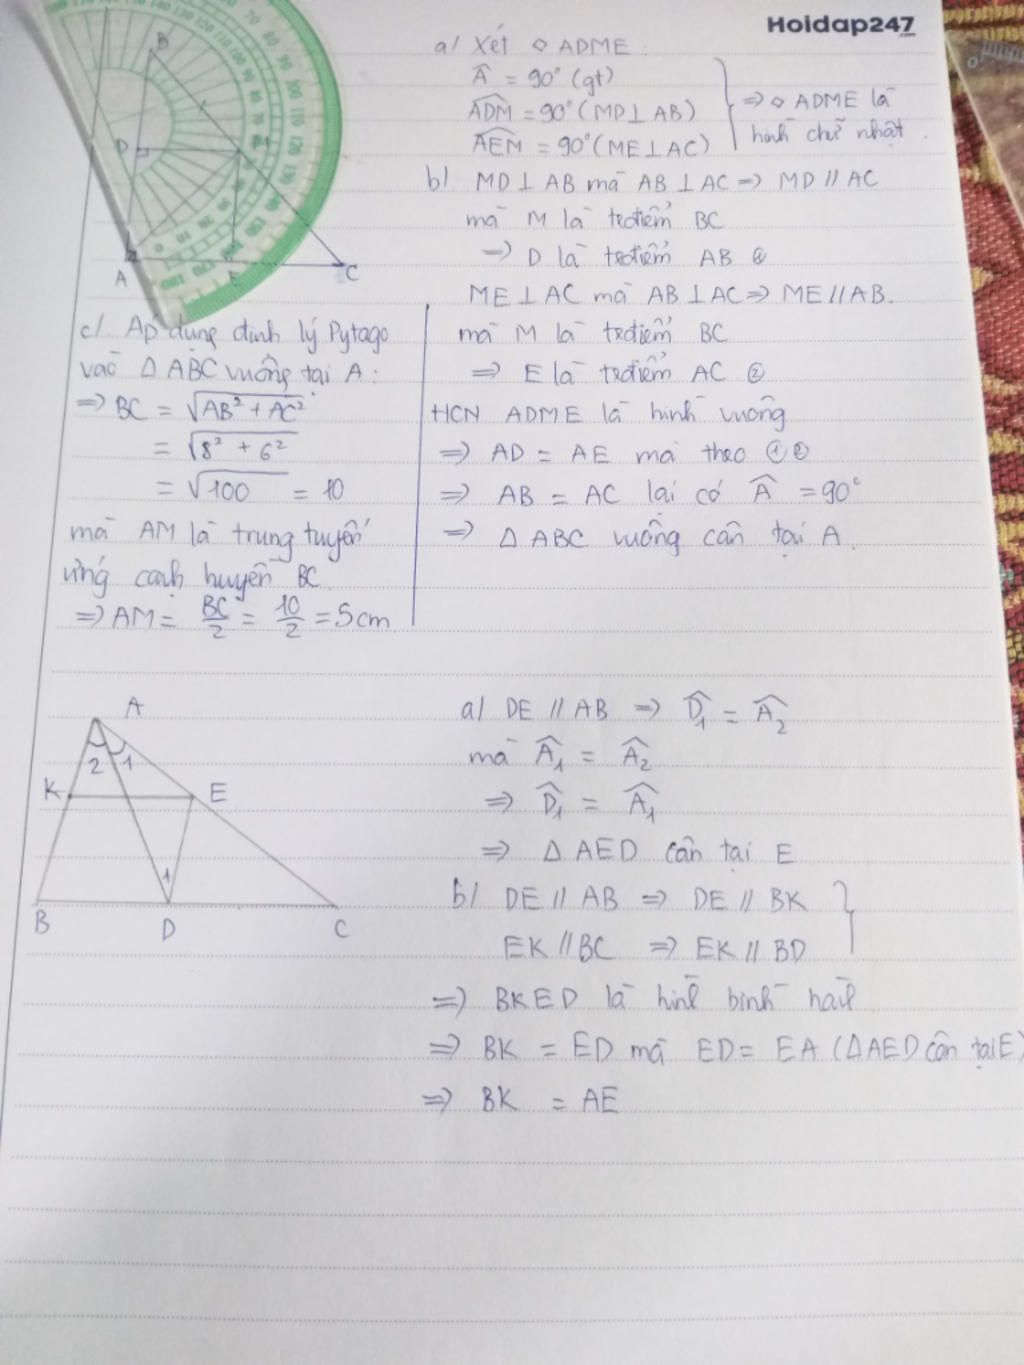 Hoidap247
B
D
M
A
E
C
a/ Xét ◇ ADME :
Â = 90° (gt)
ADM̂ = 90° (MD ⊥ AB)
AEM̂ = 90° (ME ⊥ AC)
⇒ ◇ ADME là
hình chữ nhật.
b/ MD ⊥ AB mà AB ⊥ AC ⇒ MD // AC
mà M là trđiểm BC
⇒ D là trđiểm AB ①
ME ⊥ AC mà AB ⊥ AC ⇒ ME // AB.
mà M là trđiểm BC
⇒ E là trđiểm AC ②
HCN ADME là hình vuông
⇒ AD = AE mà theo ① ②
⇒ AB = AC lại có Â = 90°
⇒ Δ ABC vuông cân tại A.
c/ Áp dụng định lý Pytago
vào Δ ABC vuông tại A :
⇒ BC = √AB² + AC²
= √8² + 6²
= √100 = 10
mà AM là trung tuyến
ứng cạnh huyền BC
⇒ AM = BC/2 = 10/2 = 5cm
A
2 1
K E
1
B D C
a/ DE // AB ⇒ D̂₁ = Â₂
mà Â₁ = Â₂
⇒ D̂₁ = Â₁
⇒ Δ AED cân tại E
b/ DE // AB ⇒ DE // BK
EK // BC ⇒ EK // BD
⇒ BKED là hình bình hành
⇒ BK = ED mà ED = EA (ΔAED cân tại E)
⇒ BK = AE